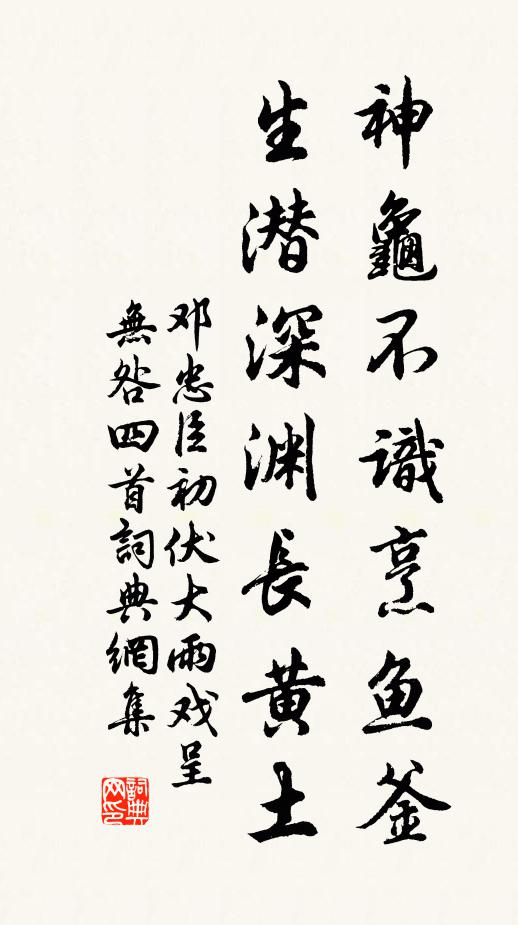 神龜不識烹魚釜
生潛深渊長黄土
邓忠臣初伏大雨戏呈
無咎四首詞典網集
詞典網印